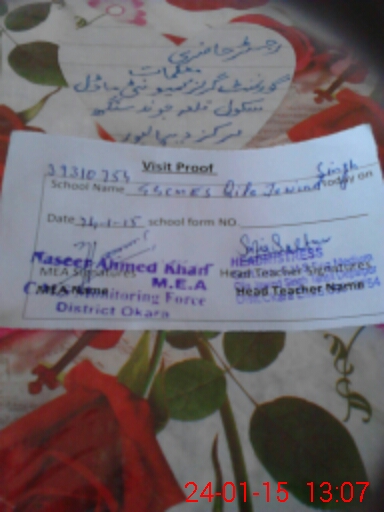 رجسٹر حاضری
معلمات
گورنمنٹ گرلز کمیونٹی ماڈل
سکول قلعہ جوند سنگھ
مرکز دیپالپور
Visit Proof
39310754 Singh
School Name GGCMES Qila Jawind today on
Date 24-1-15 school form NO
Naseer Ahmed Khan
MEA Signatures Head Teacher Signatures
M.E.A HEADMISTRESS
Monitoring Force
MEA Name Head Teacher Name
District Okara
24-01-15 13:07